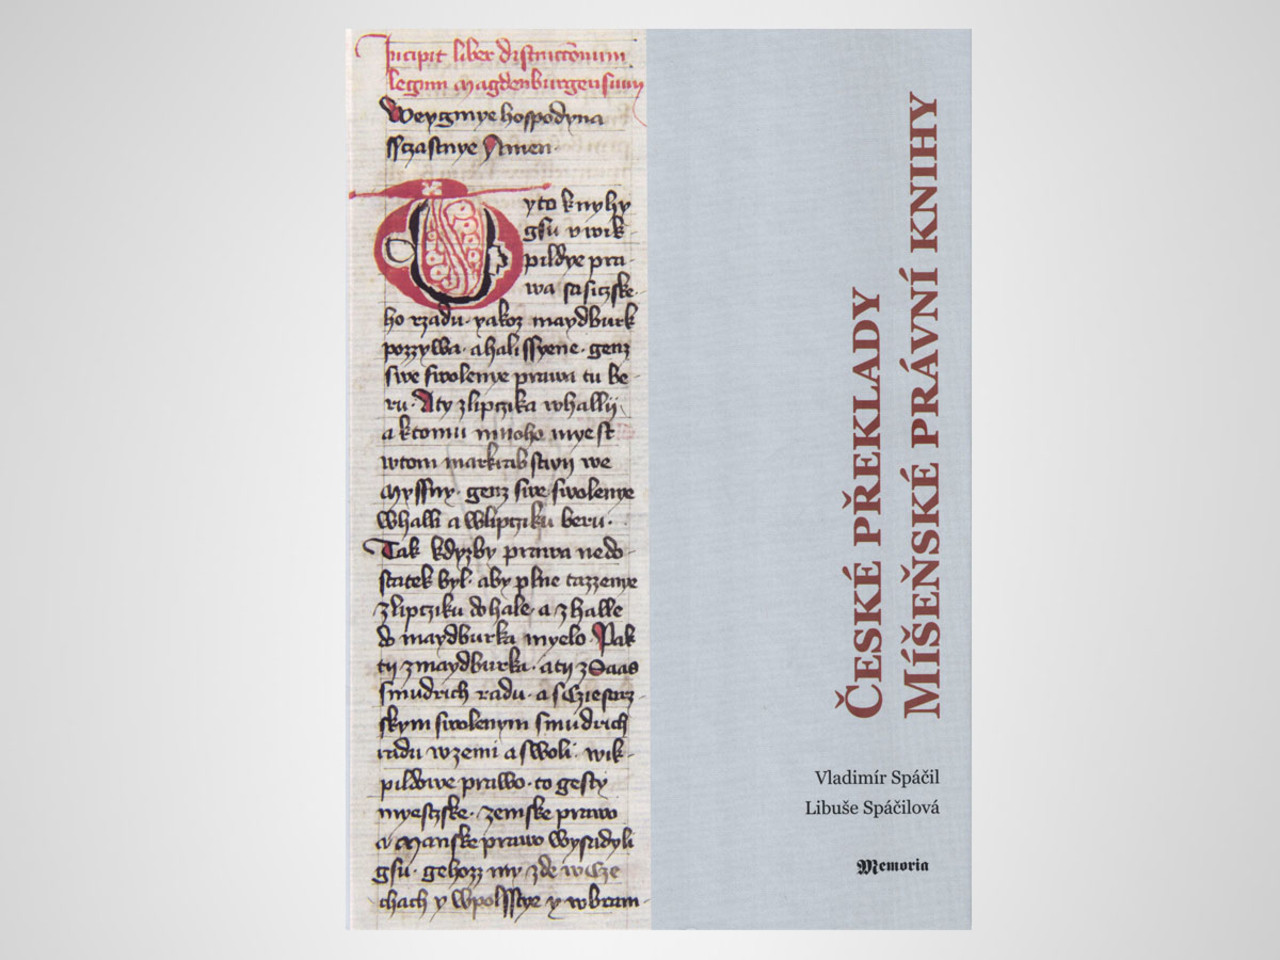 Incipit liber distinccionum
legum magdenburgensium
Weygmye hospodyna
sſczastnye Amen
Tyto knyhy
gsu vwik-
pildye pra-
wa sasiczske-
ho rzadu· yakoz maydburk
pozzywa· a hali ssyene· genz
swe swolenye prawa tu be-
ru· Aty zlipczika whallij
a ktomu mnoho myest
wtom markrabstwij we
Myssny· genz swe swolenye
whalli a wlipcziku beru·
Tak kdyzby prawa nedo-
statek byl· aby plne tazzenye
zlipcziku do hale· a z halle
do maydburka myelo Pak
tij z maydburka· atij z Saas
smudrich radu· a s Cziesarz-
skym swolenym smudrich
radu wzemi a swoli· wik-
pildowe prawo· to gesty
myestske· zemske prawo
a manske prawo wysadyli
gsu· gehozz my zde w Cze-
chach y wpolsstye y wbram-
ČESKÉ PŘEKLADY
MÍŠEŇSKÉ PRÁVNÍ KNIHY
Vladimír Spáčil
Libuše Spáčilová
Memoria